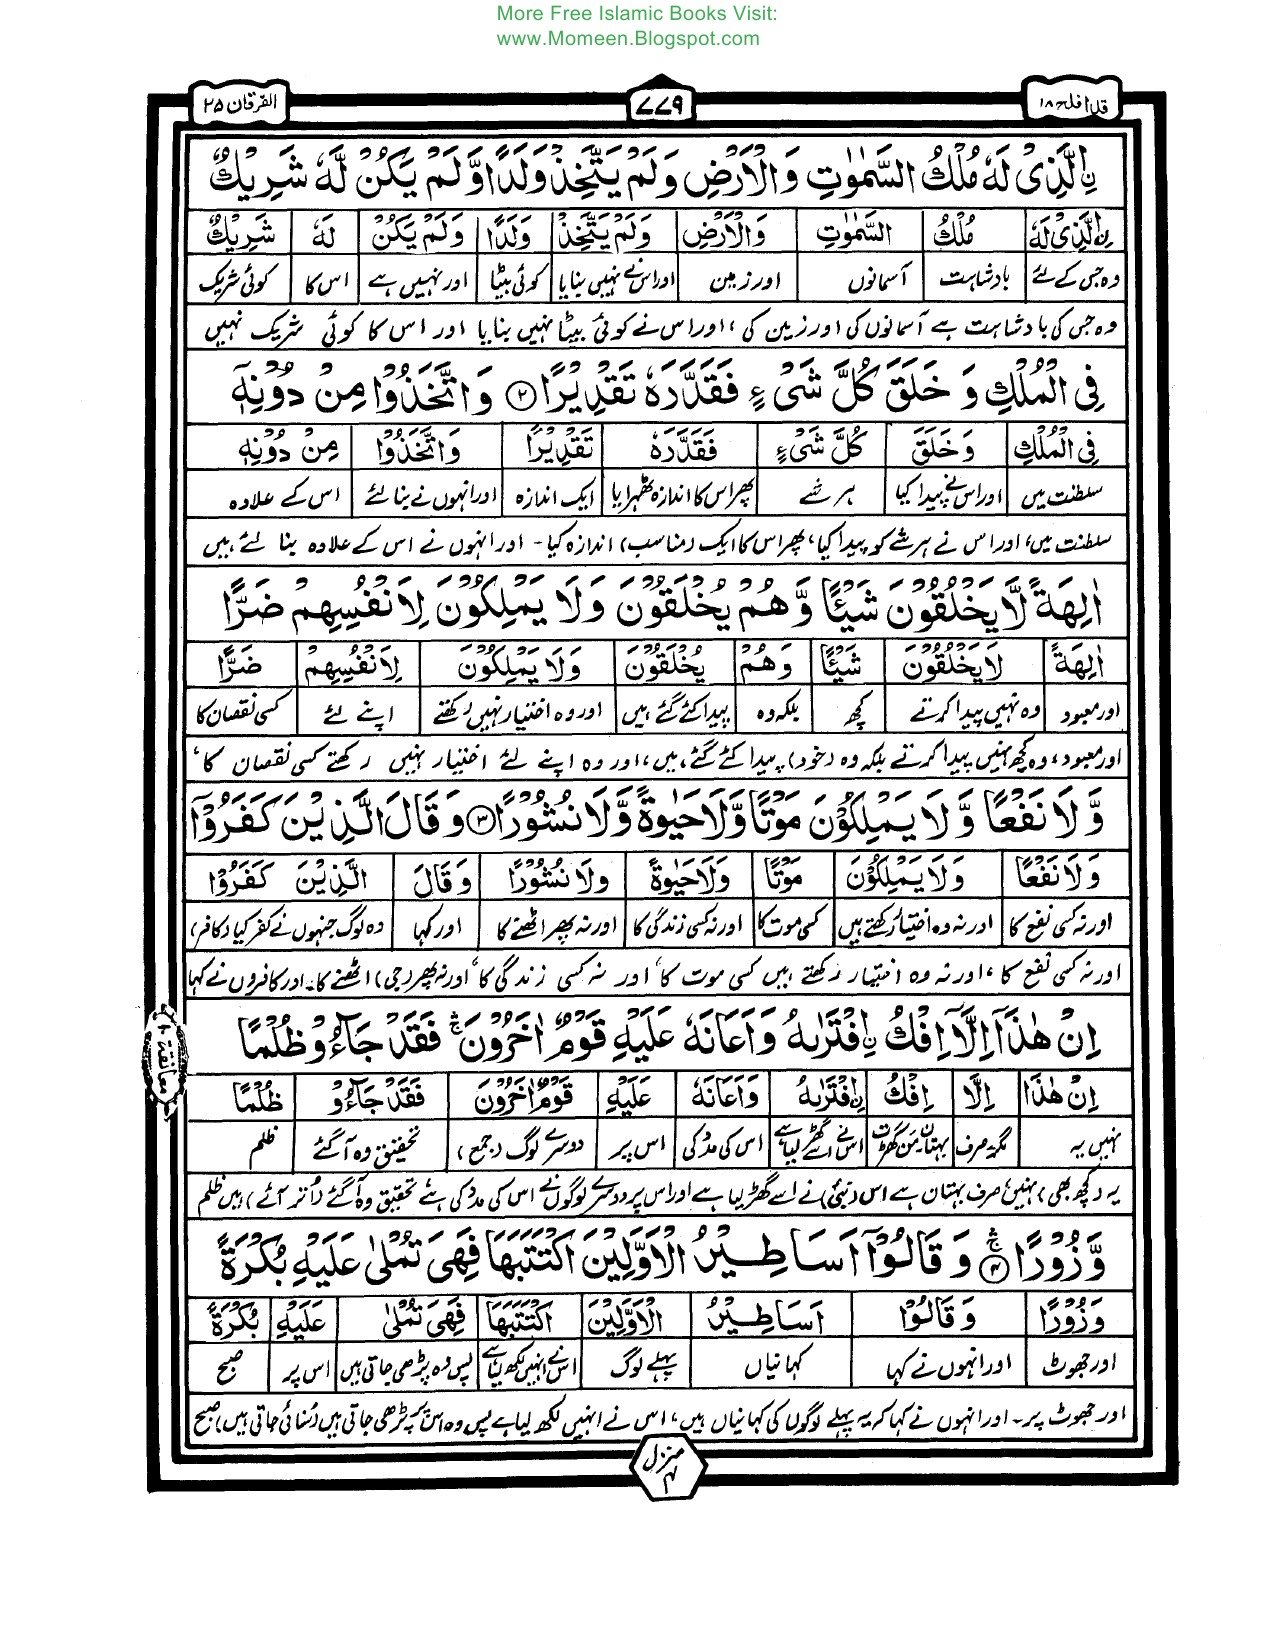 More Free Islamic Books Visit:
www.Momeen.Blogspot.com
قد افلح ۱۸
۷۷۹
الفرقان ۲۵
نِ الَّذِیْ لَهٗ مُلْكُ السَّمٰوٰتِ وَالْاَرْضِ وَلَمْ یَتَّخِذْ وَلَدًا وَّلَمْ یَكُنْ لَّهٗ شَرِیْكٌ
نِ الَّذِیْ لَهٗ مُلْكُ السَّمٰوٰتِ وَالْاَرْضِ وَلَمْ یَتَّخِذْ وَلَدًا وَلَمْ یَكُنْ لَهٗ شَرِیْكٌ
وہ جس کے لئے بادشاہت آسمانوں اور زمین اور اس نے نہیں بنایا کوئی بیٹا اور نہیں ہے اس کا کوئی شریک
وہ جس کی بادشاہت ہے آسمانوں کی اور زمین کی، اور اس نے کوئی بیٹا نہیں بنایا اور اس کا کوئی شریک نہیں
فِی الْمُلْكِ وَ خَلَقَ كُلَّ شَیْءٍ فَقَدَّرَهٗ تَقْدِیْرًا ۲ وَاتَّخَذُوْا مِنْ دُوْنِهٖۤ
فِی الْمُلْكِ وَ خَلَقَ كُلَّ شَیْءٍ فَقَدَّرَهٗ تَقْدِیْرًا وَاتَّخَذُوْا مِنْ دُوْنِهٖۤ
سلطنت میں اور اس نے پیدا کیا ہر شے پھر اس کا اندازہ ٹھہرایا ایک اندازہ اور انہوں نے بنا لئے اس کے علاوہ
سلطنت میں، اور اس نے ہر شے کو پیدا کیا، پھر اس کا ایک (مناسب) اندازہ کیا۔ اور انہوں نے اس کے علاوہ بنا لئے ہیں
اٰلِهَةً لَّا یَخْلُقُوْنَ شَیْئًا وَّهُمْ یُخْلَقُوْنَ وَلَا یَمْلِكُوْنَ لِاَنْفُسِهِمْ ضَرًّا
اٰلِهَةً لَا یَخْلُقُوْنَ شَیْئًا وَهُمْ یُخْلَقُوْنَ وَلَا یَمْلِكُوْنَ لِاَنْفُسِهِمْ ضَرًّا
اور معبود وہ نہیں پیدا کرتے کچھ بلکہ وہ پیدا کئے گئے ہیں اور وہ اختیار نہیں رکھتے اپنے لئے کسی نقصان کا
اور معبود، وہ کچھ نہیں پیدا کرتے بلکہ وہ (خود) پیدا کئے گئے ہیں، اور وہ اپنے لئے اختیار نہیں رکھتے کسی نقصان کا،
وَّ لَا نَفْعًا وَّ لَا یَمْلِكُوْنَ مَوْتًا وَّلَا حَیٰوةً وَّلَا نُشُوْرًا ۳ وَ قَالَ الَّذِیْنَ كَفَرُوْۤا
وَلَا نَفْعًا وَلَا یَمْلِكُوْنَ مَوْتًا وَلَا حَیٰوةً وَلَا نُشُوْرًا وَ قَالَ الَّذِیْنَ كَفَرُوْۤا
اور نہ کسی نفع کا اور نہ وہ اختیار رکھتے ہیں کسی موت کا اور نہ کسی زندگی کا اور نہ پھر اٹھنے کا اور کہا وہ لوگ جنہوں نے کفر کیا (کافر)
اور نہ کسی نفع کا، اور نہ وہ اختیار رکھتے ہیں کسی موت کا، اور نہ کسی زندگی کا، اور نہ پھر (جی) اٹھنے کا۔ اور کافروں نے کہا
اِنْ هٰذَاۤ اِلَّاۤ اِفْكُ نِ افْتَرٰىهُ وَاَعَانَهٗ عَلَیْهِ قَوْمٌ اٰخَرُوْنَ ۛۚ فَقَدْ جَآءُوْ ظُلْمًا
اِنْ هٰذَا اِلَّا اِفْكُ نِ افْتَرٰىهُ وَاَعَانَهٗ عَلَیْهِ قَوْمٌ اٰخَرُوْنَ فَقَدْ جَآءُوْ ظُلْمًا
نہیں یہ مگر۔صرف بہتان۔من گھڑت اس نے اسے گھڑ لیا ہے اس کی مدد کی اس پر دوسرے لوگ (جمع) تحقیق وہ آگئے ظلم
یہ (کچھ بھی) نہیں، صرف بہتان ہے اس (نبیؐ) نے اسے گھڑ لیا ہے اور اس پر دوسرے لوگوں نے اس کی مدد کی ہے، تحقیق وہ آگئے (اُتر آئے) ہیں ظلم
وَّزُوْرًا ۛۚ ۴ وَ قَالُوْۤا اَسَاطِیْرُ الْاَوَّلِیْنَ اكْتَتَبَهَا فَهِیَ تُمْلٰى عَلَیْهِ بُكْرَةً
وَزُوْرًا وَ قَالُوْا اَسَاطِیْرُ الْاَوَّلِیْنَ اكْتَتَبَهَا فَهِیَ تُمْلٰى عَلَیْهِ بُكْرَةً
اور جھوٹ اور انہوں نے کہا کہانیاں پہلے لوگ اس نے انہیں لکھ لیا ہے پس وہ پڑھی جاتی ہیں اس پر صبح
اور جھوٹ پر۔ اور انہوں نے کہا کہ یہ پہلے لوگوں کی کہانیاں ہیں، اس نے انہیں لکھ لیا ہے پس وہ اس پر پڑھی جاتی ہیں (سُنائی جاتی ہیں) صبح
معانقة ۱۰
منزل ۴